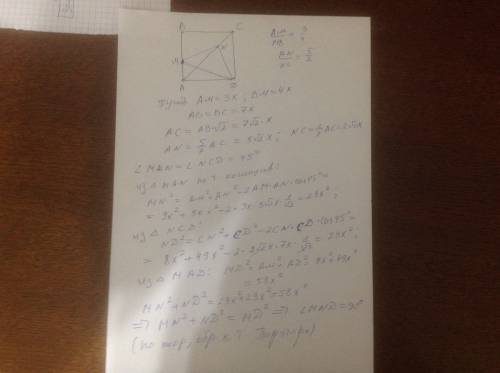 B C
M N
A D
AM/MB = 3/4
AN/NC = 5/2
Пусть AM = 3x; BM = 4x
AB = BC = 7x
AC = AB√2 = 7√2·x
AN = 5/7 AC = 5√2x; NC = 2/7 AC = 2√2x
∠MAN = ∠NCD = 45°
из △MAN по т. косинусов:
MN² = AM² + AN² − 2AM·AN·cos45° =
= 9x² + 50x² − 2·3x·5√2x·1/√2 = 29x²;
из △NCD:
ND² = CN² + CD² − 2CN·CD·cos45° =
= 8x² + 49x² − 2·2√2x·7x·1/√2 = 29x²;
из △MAD: MD² = AM² + AD² = 9x² + 49x²
= 58x²
MN² + ND² = 29x² + 29x² = 58x²
⇒ MN² + ND² = MD² ⇒ ∠MND = 90°
(по теор., обр. к т. Пифагора)